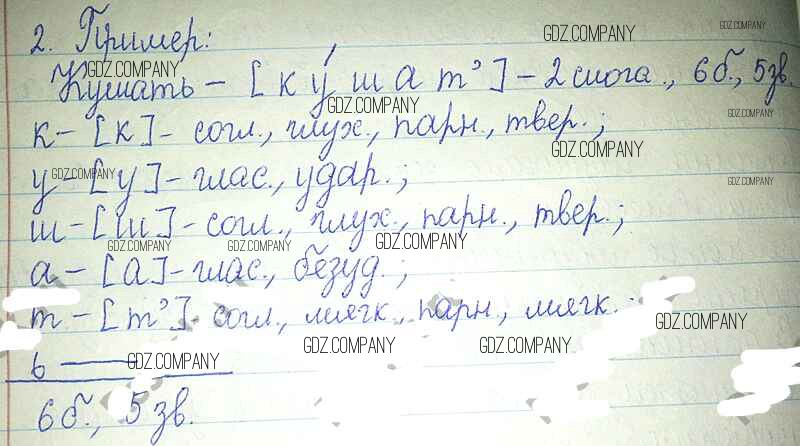 2. Пример:
GDZ.COMPANY
GDZ.COMPANY
GDZ.COMPANY
Кушать – [к у́ ш а т'] – 2 слога., 6б., 5зв.
GDZ.COMPANY
GDZ.COMPANY
к – [к] – согл., глух., парн., твер.;
GDZ.COMPANY
GDZ.COMPANY
GDZ.COMPANY
у – [у] – глас., удар.;
ш – [ш] – согл., глух., парн., твер.;
GDZ.COMPANY
GDZ.COMPANY
GDZ.COMPANY
а – [а] – глас., безуд.;
т – [т'] – согл., мягк., парн., мягк.;
GDZ.COMPANY
GDZ.COMPANY
GDZ.COMPANY
GDZ.COMPANY
ь ——
6б., 5 зв.